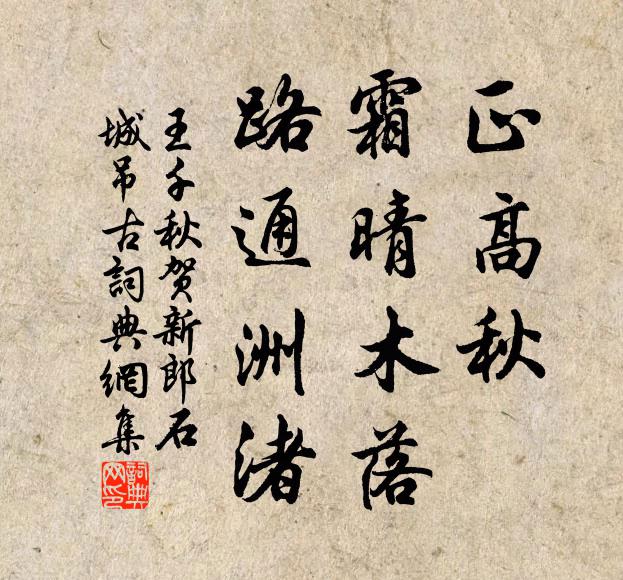 正高秋
霜晴木落
路通洲渚
王千秋贺新郎石
城吊古詞典網集
詞典
网印